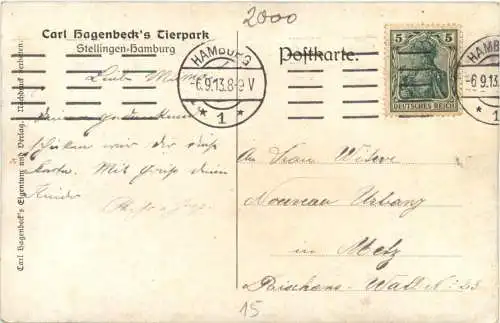 2000
Carl Hagenbeck's Tierpark
Stellingen-Hamburg
Postkarte.
HAMBURG
-6.9.13.8-9 V
* 1 *
5 5
DEUTSCHES REICH
HAMBURG
-6.9.13.
* 1
Carl Hagenbeck's Eigentum und Verlag. Nachdruck verboten.
Liebe
wir dir diese
Karte. Mit Gruß deine
Kinder
An Frau Witwe
Nouveau Urbany
in Metz
Wall No 23
15